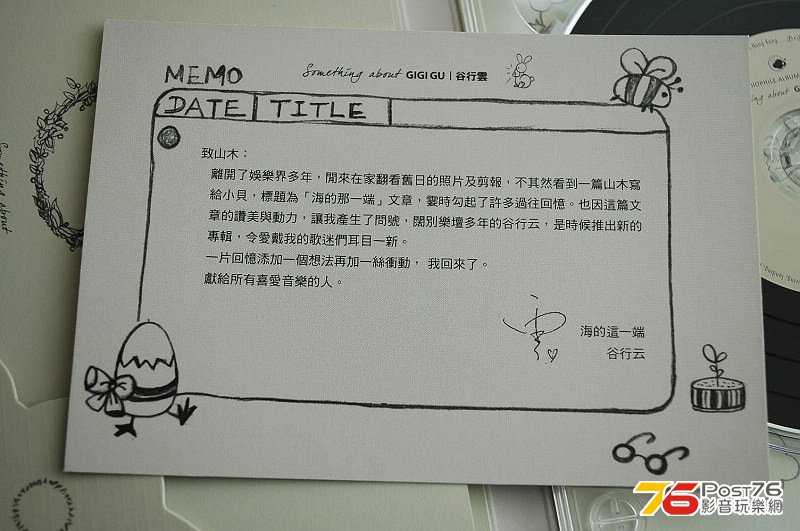 MEMO
Something about GIGI GU | 谷行雲
DATE TITLE
致山木：
離開了娛樂界多年，閒來在家翻看舊日的照片及剪報，不其然看到一篇山木寫
給小貝，標題為「海的那一端」文章，霎時勾起了許多過往回憶。也因這篇文
章的讚美與動力，讓我產生了問號，闊別樂壇多年的谷行云，是時候推出新的
專輯，令愛戴我的歌迷們耳目一新。
一片回憶添加一個想法再加一絲衝動， 我回來了。
獻給所有喜愛音樂的人。
海的這一端
谷行云
Something about
Hong Kong
PHILE ALBUM
ng about G
76 Post76
影音玩樂網